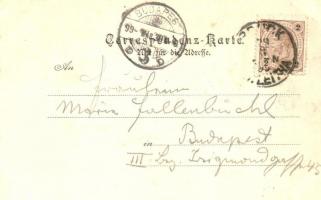 BUDAPEST
Correspondenz-Karte.
Nur für die Adresse.
An
Fräulein
Marie Fallenbüchl
in Budapest
III. Bez. Zsigmondgasse 45